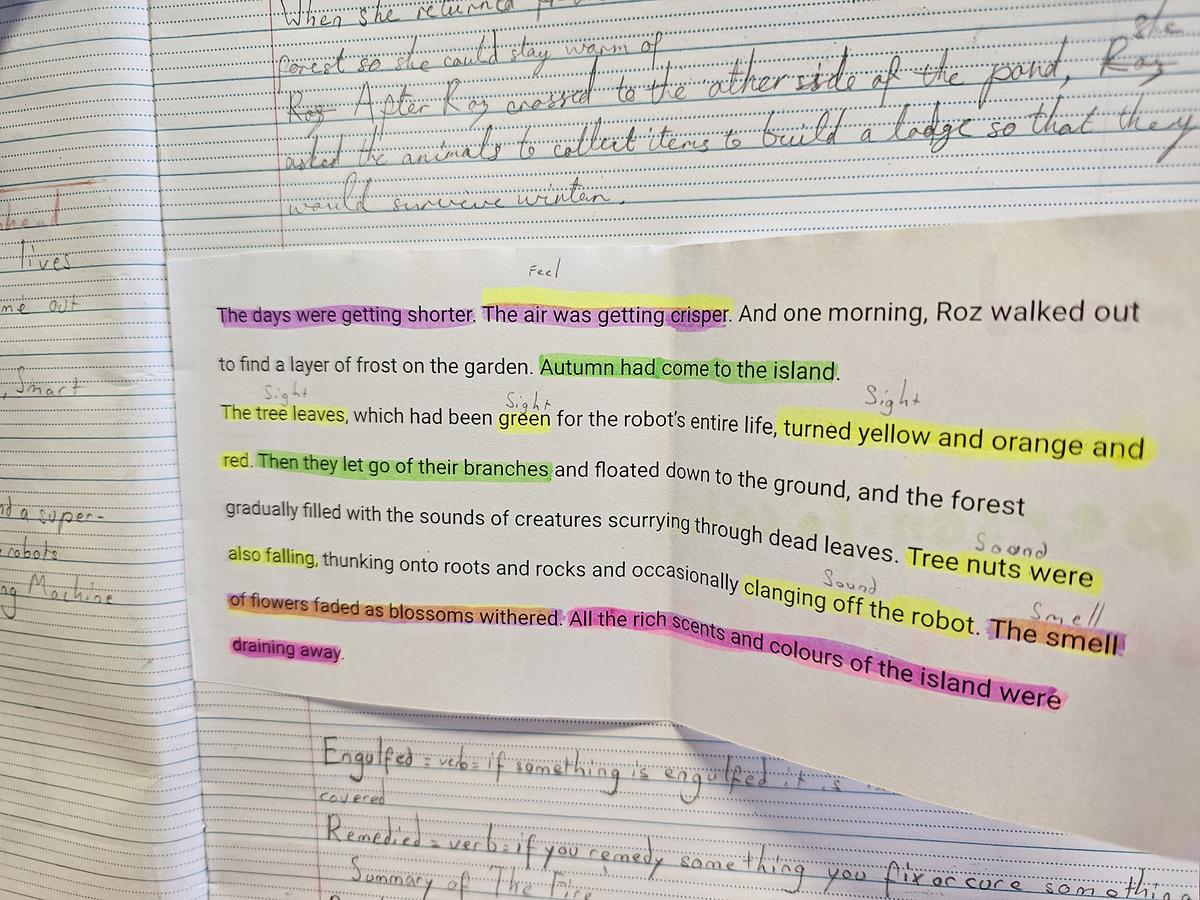 When she returned
forest so she could stay warm of
Roz After Roz crossed to the other side of the pond, Roz she
asked the animals to collect items to build a lodge so that they
would survive winter.
lives
me out
, Smart
d a super-
robots
ng Machine
Feel
The days were getting shorter. The air was getting crisper. And one morning, Roz walked out
to find a layer of frost on the garden. Autumn had come to the island.
Sight Sight Sight
The tree leaves, which had been green for the robot's entire life, turned yellow and orange and
red. Then they let go of their branches and floated down to the ground, and the forest
gradually filled with the sounds of creatures scurrying through dead leaves. Tree nuts were
Sound
also falling, thunking onto roots and rocks and occasionally clanging off the robot. The smell
Sound Smell
of flowers faded as blossoms withered. All the rich scents and colours of the island were
draining away.
Engulfed = verb = if something is engulfed it is
covered
Remedied = verb = if you remedy something you fix or cure something
Summary of The Fire